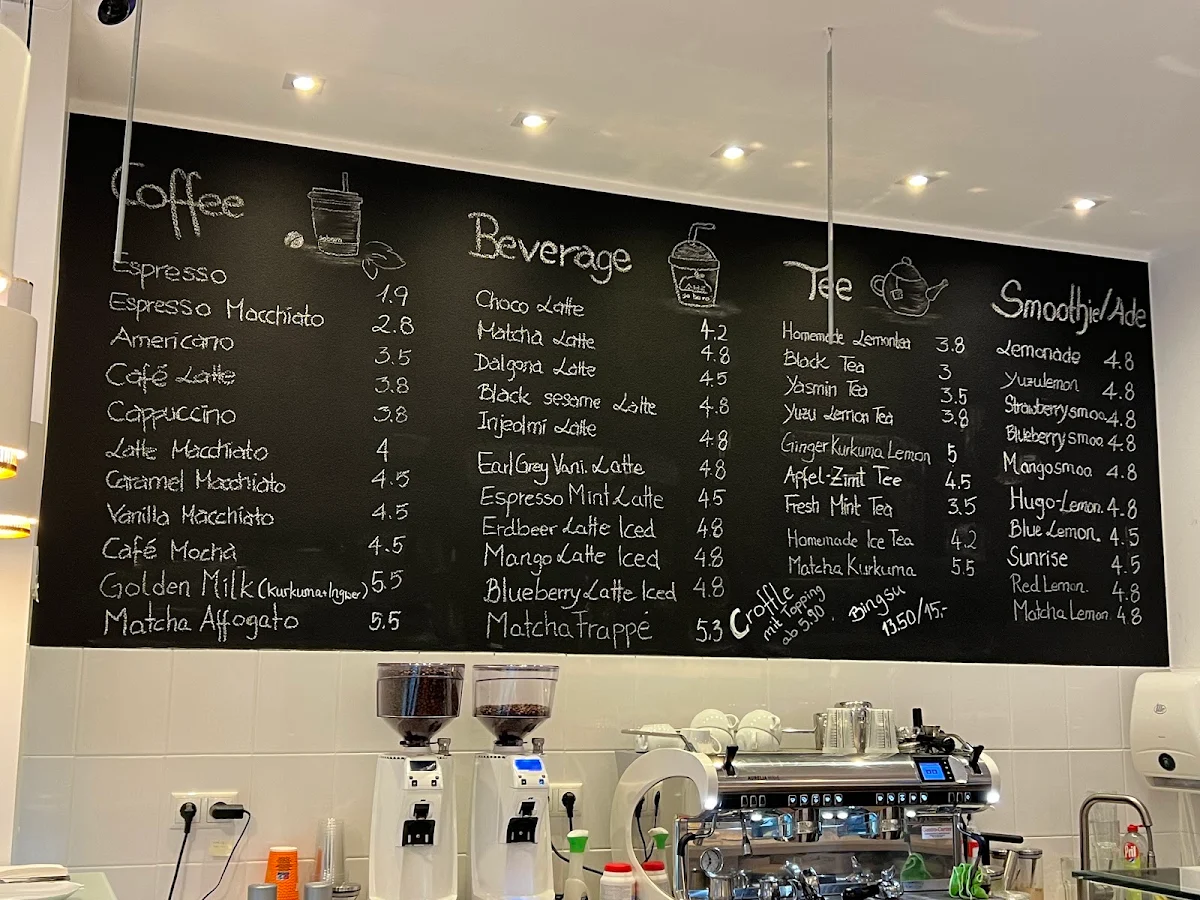 Coffee
Espresso 1.9
Espresso Macchiato 2.8
Americano 3.5
Café Latte 3.8
Cappuccino 3.8
Latte Macchiato 4
Caramel Macchiato 4.5
Vanilla Macchiato 4.5
Café Mocha 4.5
Golden Milk (Kurkuma+Ingwer) 5.5
Matcha Affogato 5.5
Beverage
Choco Latte 4.2
Matcha Latte 4.8
Dalgona Latte 4.5
Black sesame Latte 4.8
Injeolmi Latte 4.8
Earl Grey Vani. Latte 4.8
Espresso Mint Latte 4.5
Erdbeer Latte Iced 4.8
Mango Latte Iced 4.8
Blueberry Latte Iced 4.8
Matcha Frappé 5.3
Tee
Homemade Lemontea 3.8
Black Tea 3
Yasmin Tea 3.5
Yuzu Lemon Tea 3.8
Ginger Kurkuma Lemon 5
Apfel-Zimt Tee 4.5
Fresh Mint Tea 3.5
Homemade Ice Tea 4.2
Matcha Kurkuma 5.5
Croffle
mit Topping
ab 5.90.
Bingsu
13.50/15.-
Smoothie/Ade
Lemonade 4.8
Yuzulemon 4.8
Strawberrysmoo 4.8
Blueberrysmoo 4.8
Mangosmoo 4.8
Hugo-Lemon. 4.8
Blue Lemon. 4.5
Sunrise 4.5
Red Lemon. 4.8
Matcha Lemon. 4.8
Pril